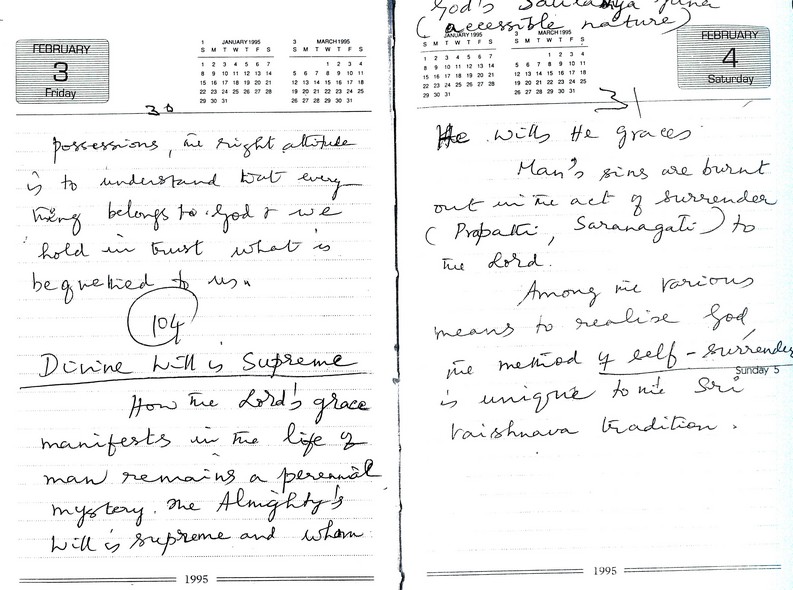 FEBRUARY
3
Friday
1 JANUARY 1995
S M T W T F S
1 2 3 4 5 6 7
8 9 10 11 12 13 14
15 16 17 18 19 20 21
22 23 24 25 26 27 28
29 30 31
3 MARCH 1995
S M T W T F S
1 2 3 4
5 6 7 8 9 10 11
12 13 14 15 16 17 18
19 20 21 22 23 24 25
26 27 28 29 30 31
30
possessions, the right attitude
is to understand that every
thing belongs to God & we
hold in trust what is
bequethed to us.
104
Divine Will is Supreme
How the Lord's grace
manifests in the life of
man remains a perennial
mystery. The Almighty's
Will is supreme and whom
1995
God's Saulabhya guna
(accessible nature)
JANUARY 1995
S M T W T F S
1 2 3 4 5 6 7
8 9 10 11 12 13 14
15 16 17 18 19 20 21
22 23 24 25 26 27 28
29 30 31
3 MARCH 1995
S M T W T F S
1 2 3 4
5 6 7 8 9 10 11
12 13 14 15 16 17 18
19 20 21 22 23 24 25
26 27 28 29 30 31
FEBRUARY
4
Saturday
31
He wills He graces.
Man's sins are burnt
out in the act of surrender
(Prapatti, Saranagati) to
the Lord.
Among the various
means to realise God,
the method of self-surrender
Sunday 5
is unique to the Sri
Vaishnava tradition.
1995